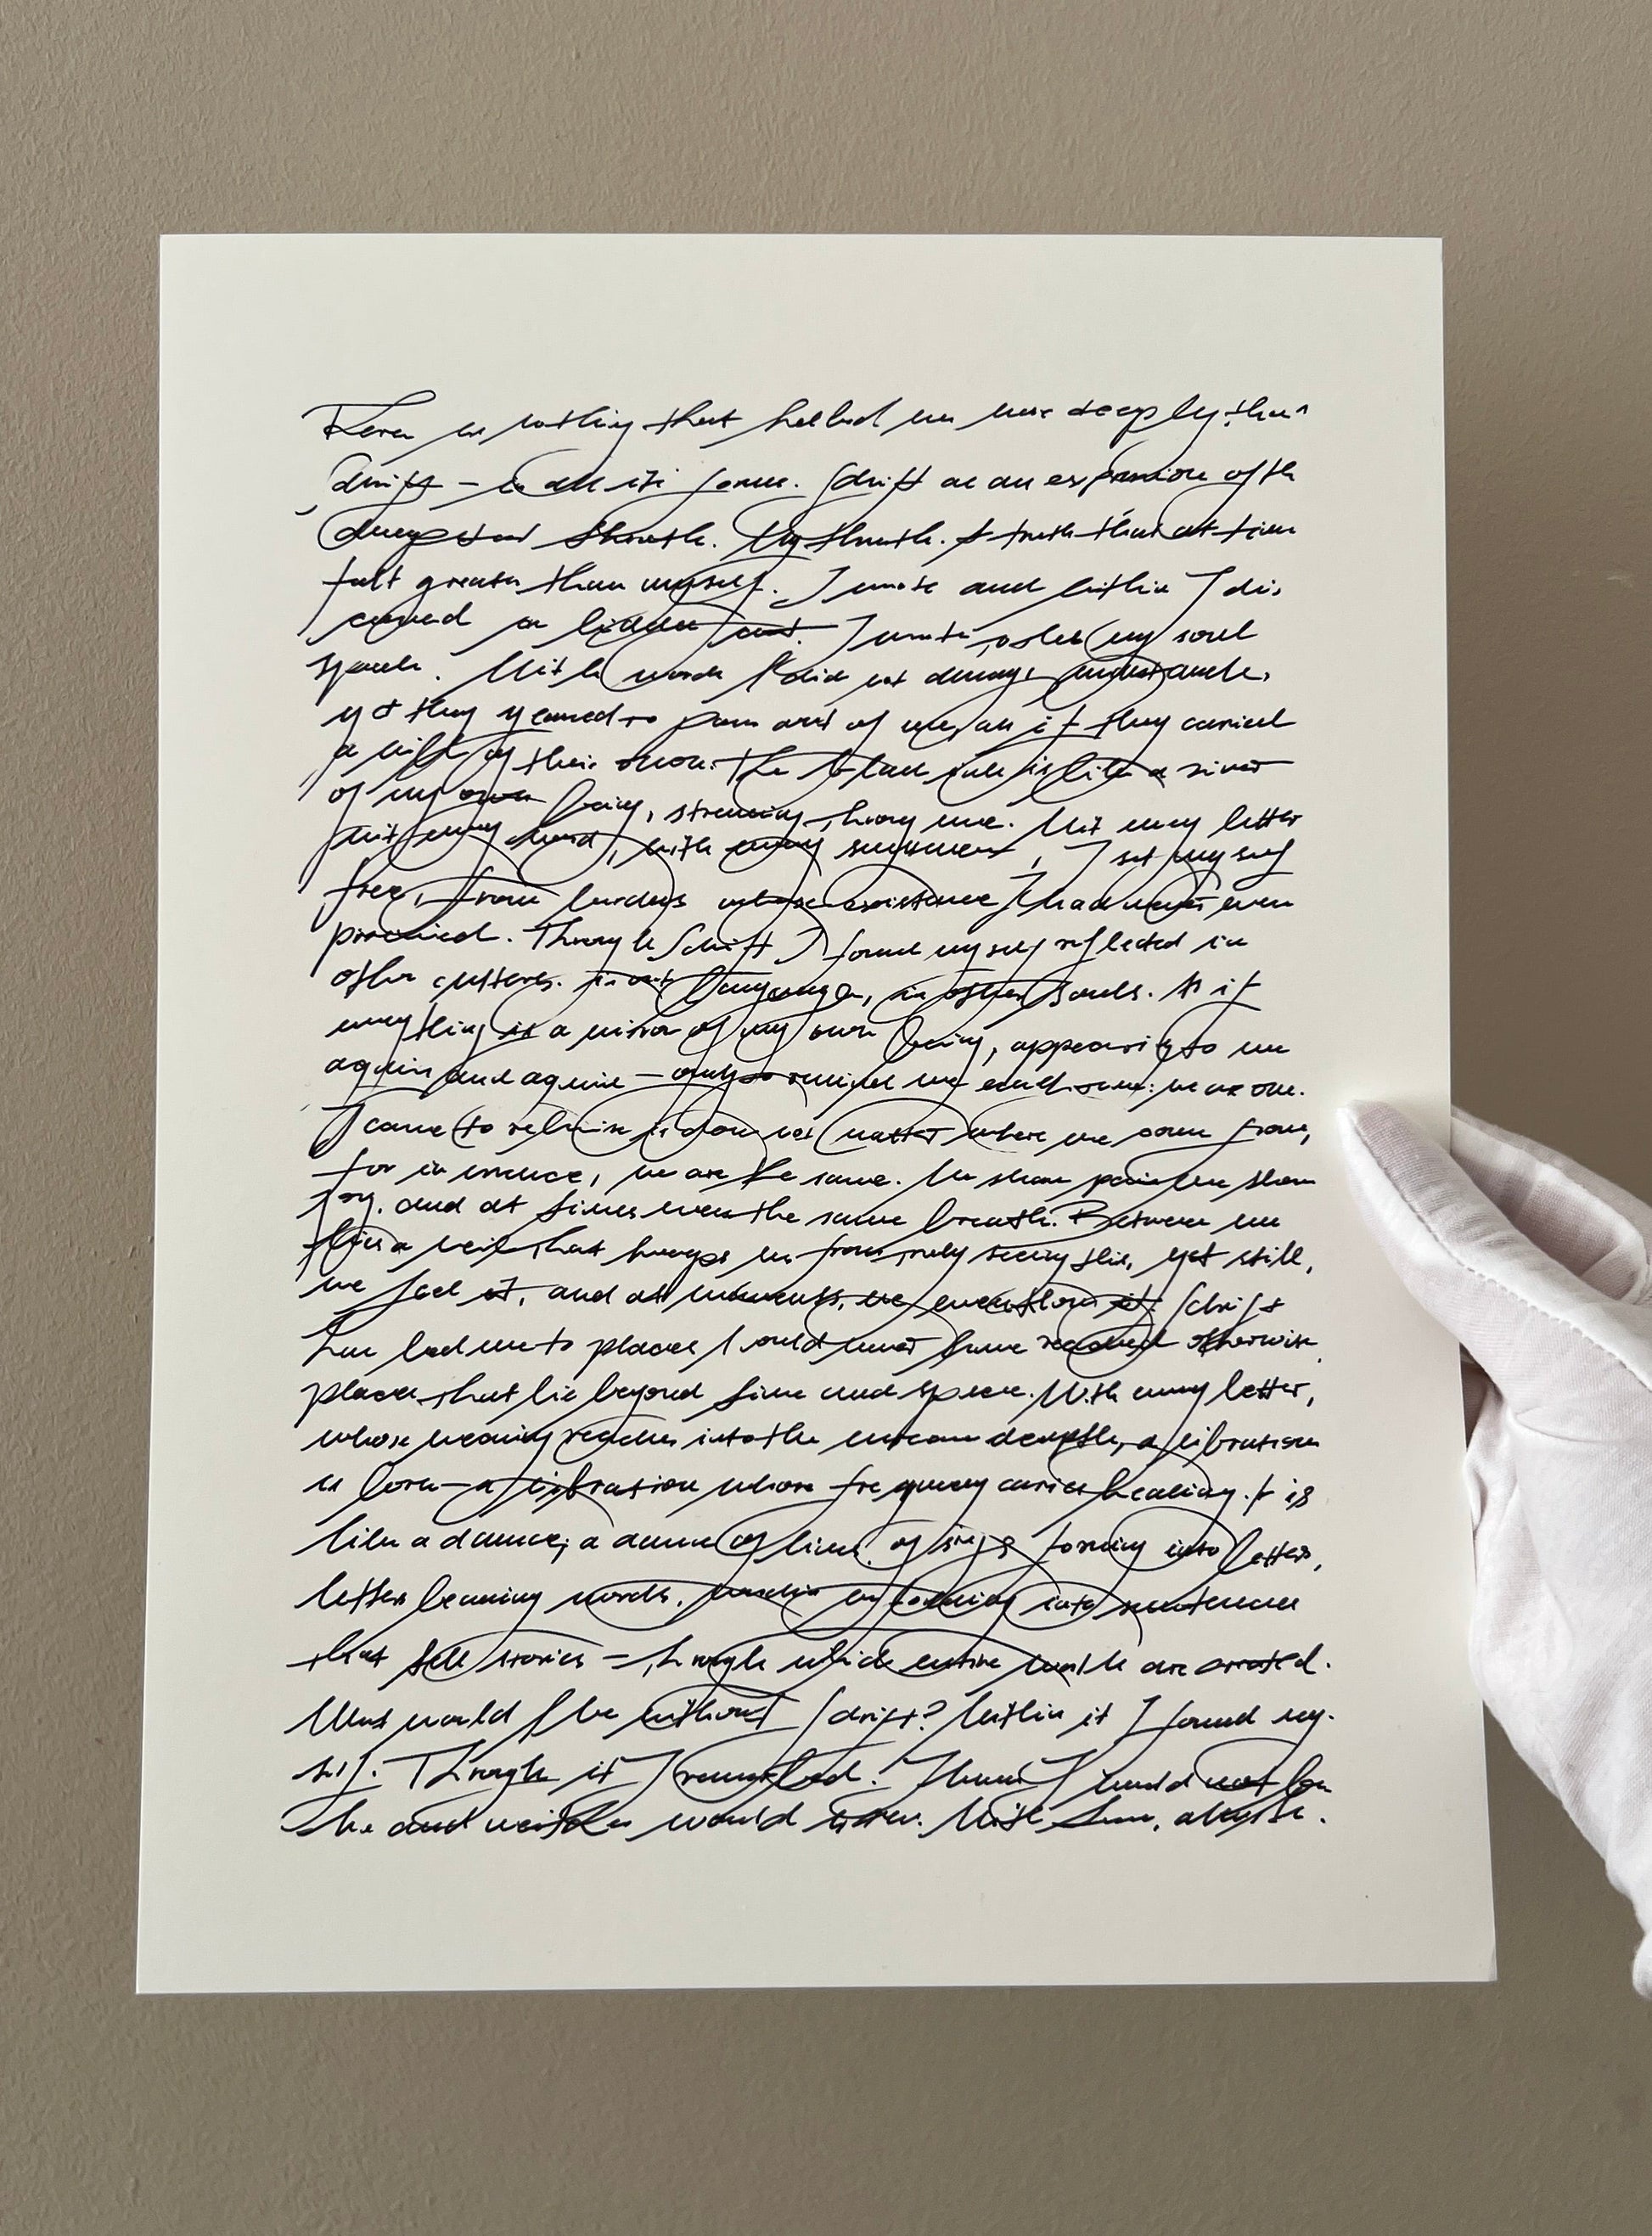 There is nothing that healed me more deeply than
Schrift – in all its forms. Schrift as an expression of the
deepest truth. My truth. A truth that at times
felt greater than myself. I wrote and within I dis
covered a hidden I wrote, so let my soul
speak. With words I did not always understand,
yet they yearned to pour out of me, as if they carried
a will of their own. The black ink is like a river
of my own being, streaming through me. With every letter
with every word, with every I set myself
free, from burdens whose existence I had never even
perceived. Through Schrift I found myself reflected in
other cultures. in languages, in other souls. As if
everything is a mirror of my own being, appearing to me
again and again – only to remind me each time: we are one.
I came to realise it does not matter where we come from,
for in essence, we are the same. We share pain, we share
joy. and at times even the same breath. Between us
lies a veil that keeps us from truly seeing this, yet still,
we feel it, and at moments, we even it. Schrift
has led me to places I could never have reached otherwise
places that lie beyond time and space. With every letter,
whose meaning reaches into the unseen depths, a vibration
is born – a vibration whose frequency carries healing. It is
like a dance, a dance of lines. of forming into letters,
letters becoming words. words into sentences
that tell stories – through which entire worlds are created.
What would I be without Schrift? Within it I found my-
self. Through it I I would not
be and would With love,